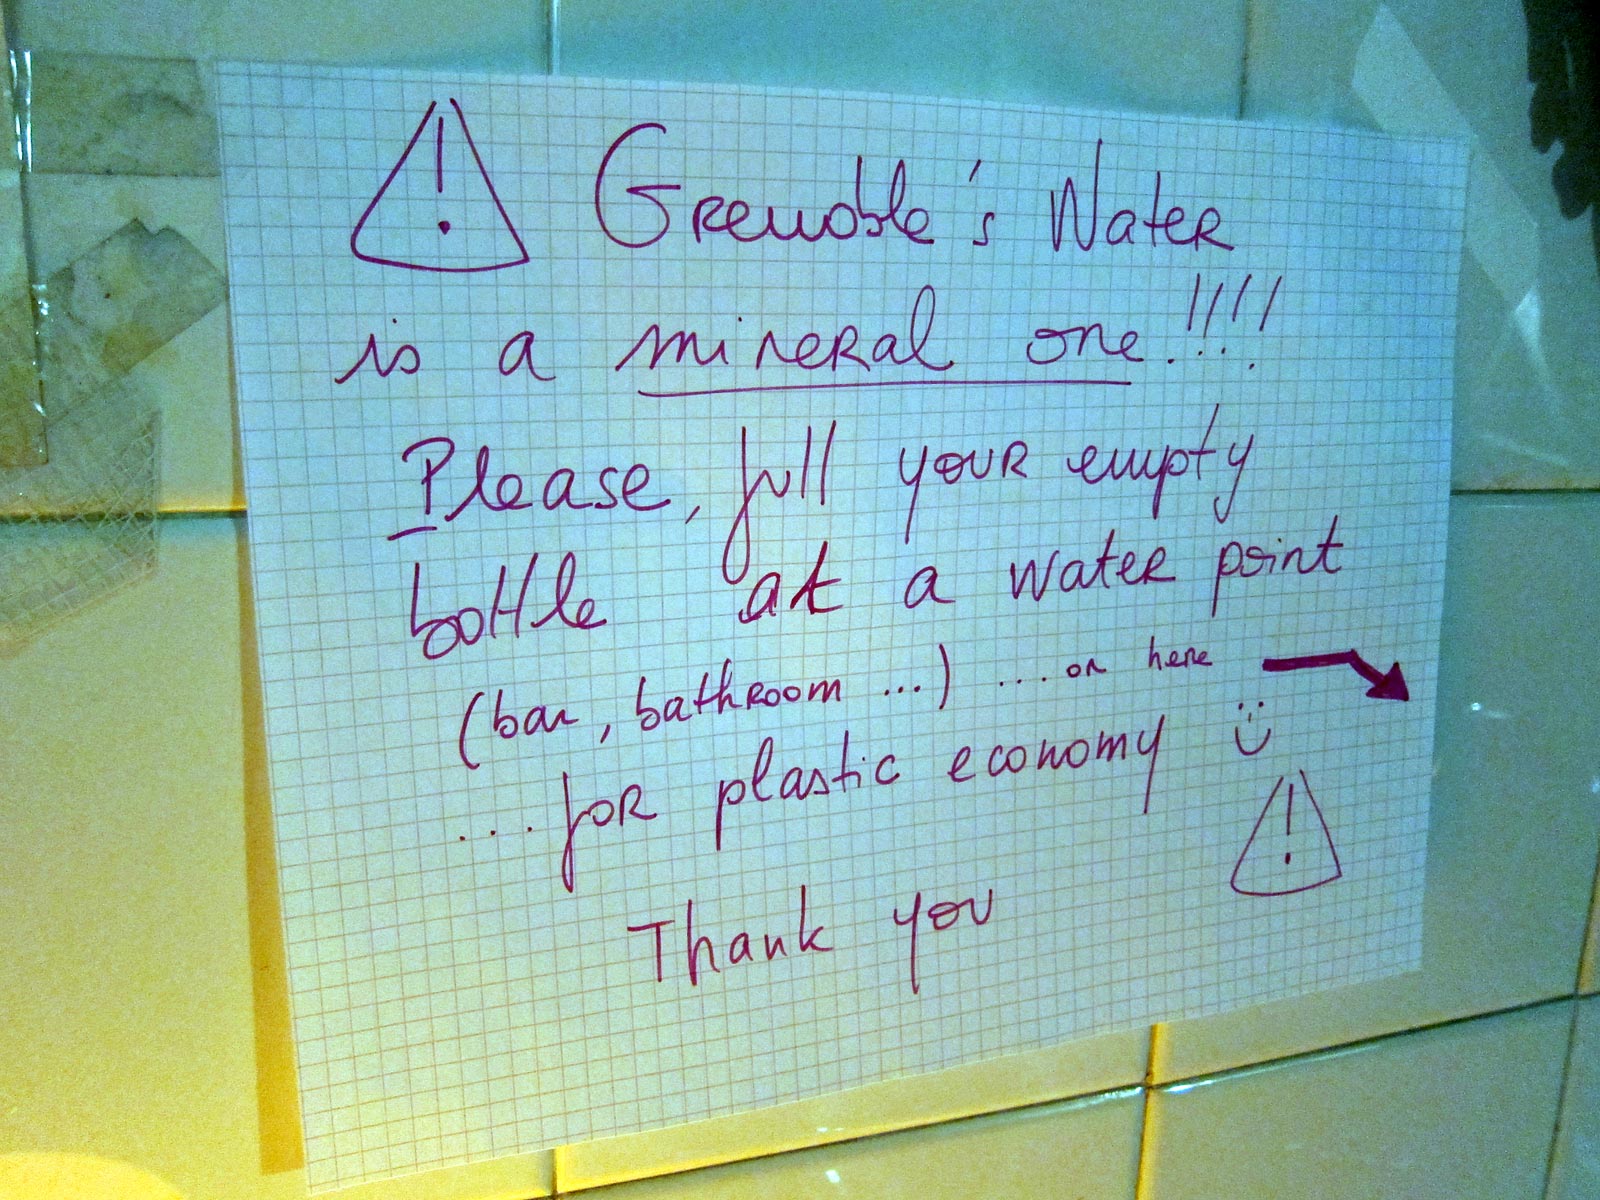 ! Grenoble's Water
is a mineral one!!!!
Please, full your empty
bottle at a water point
(bar, bathroom ...) ... or here
.... for plastic economy
!
Thank you